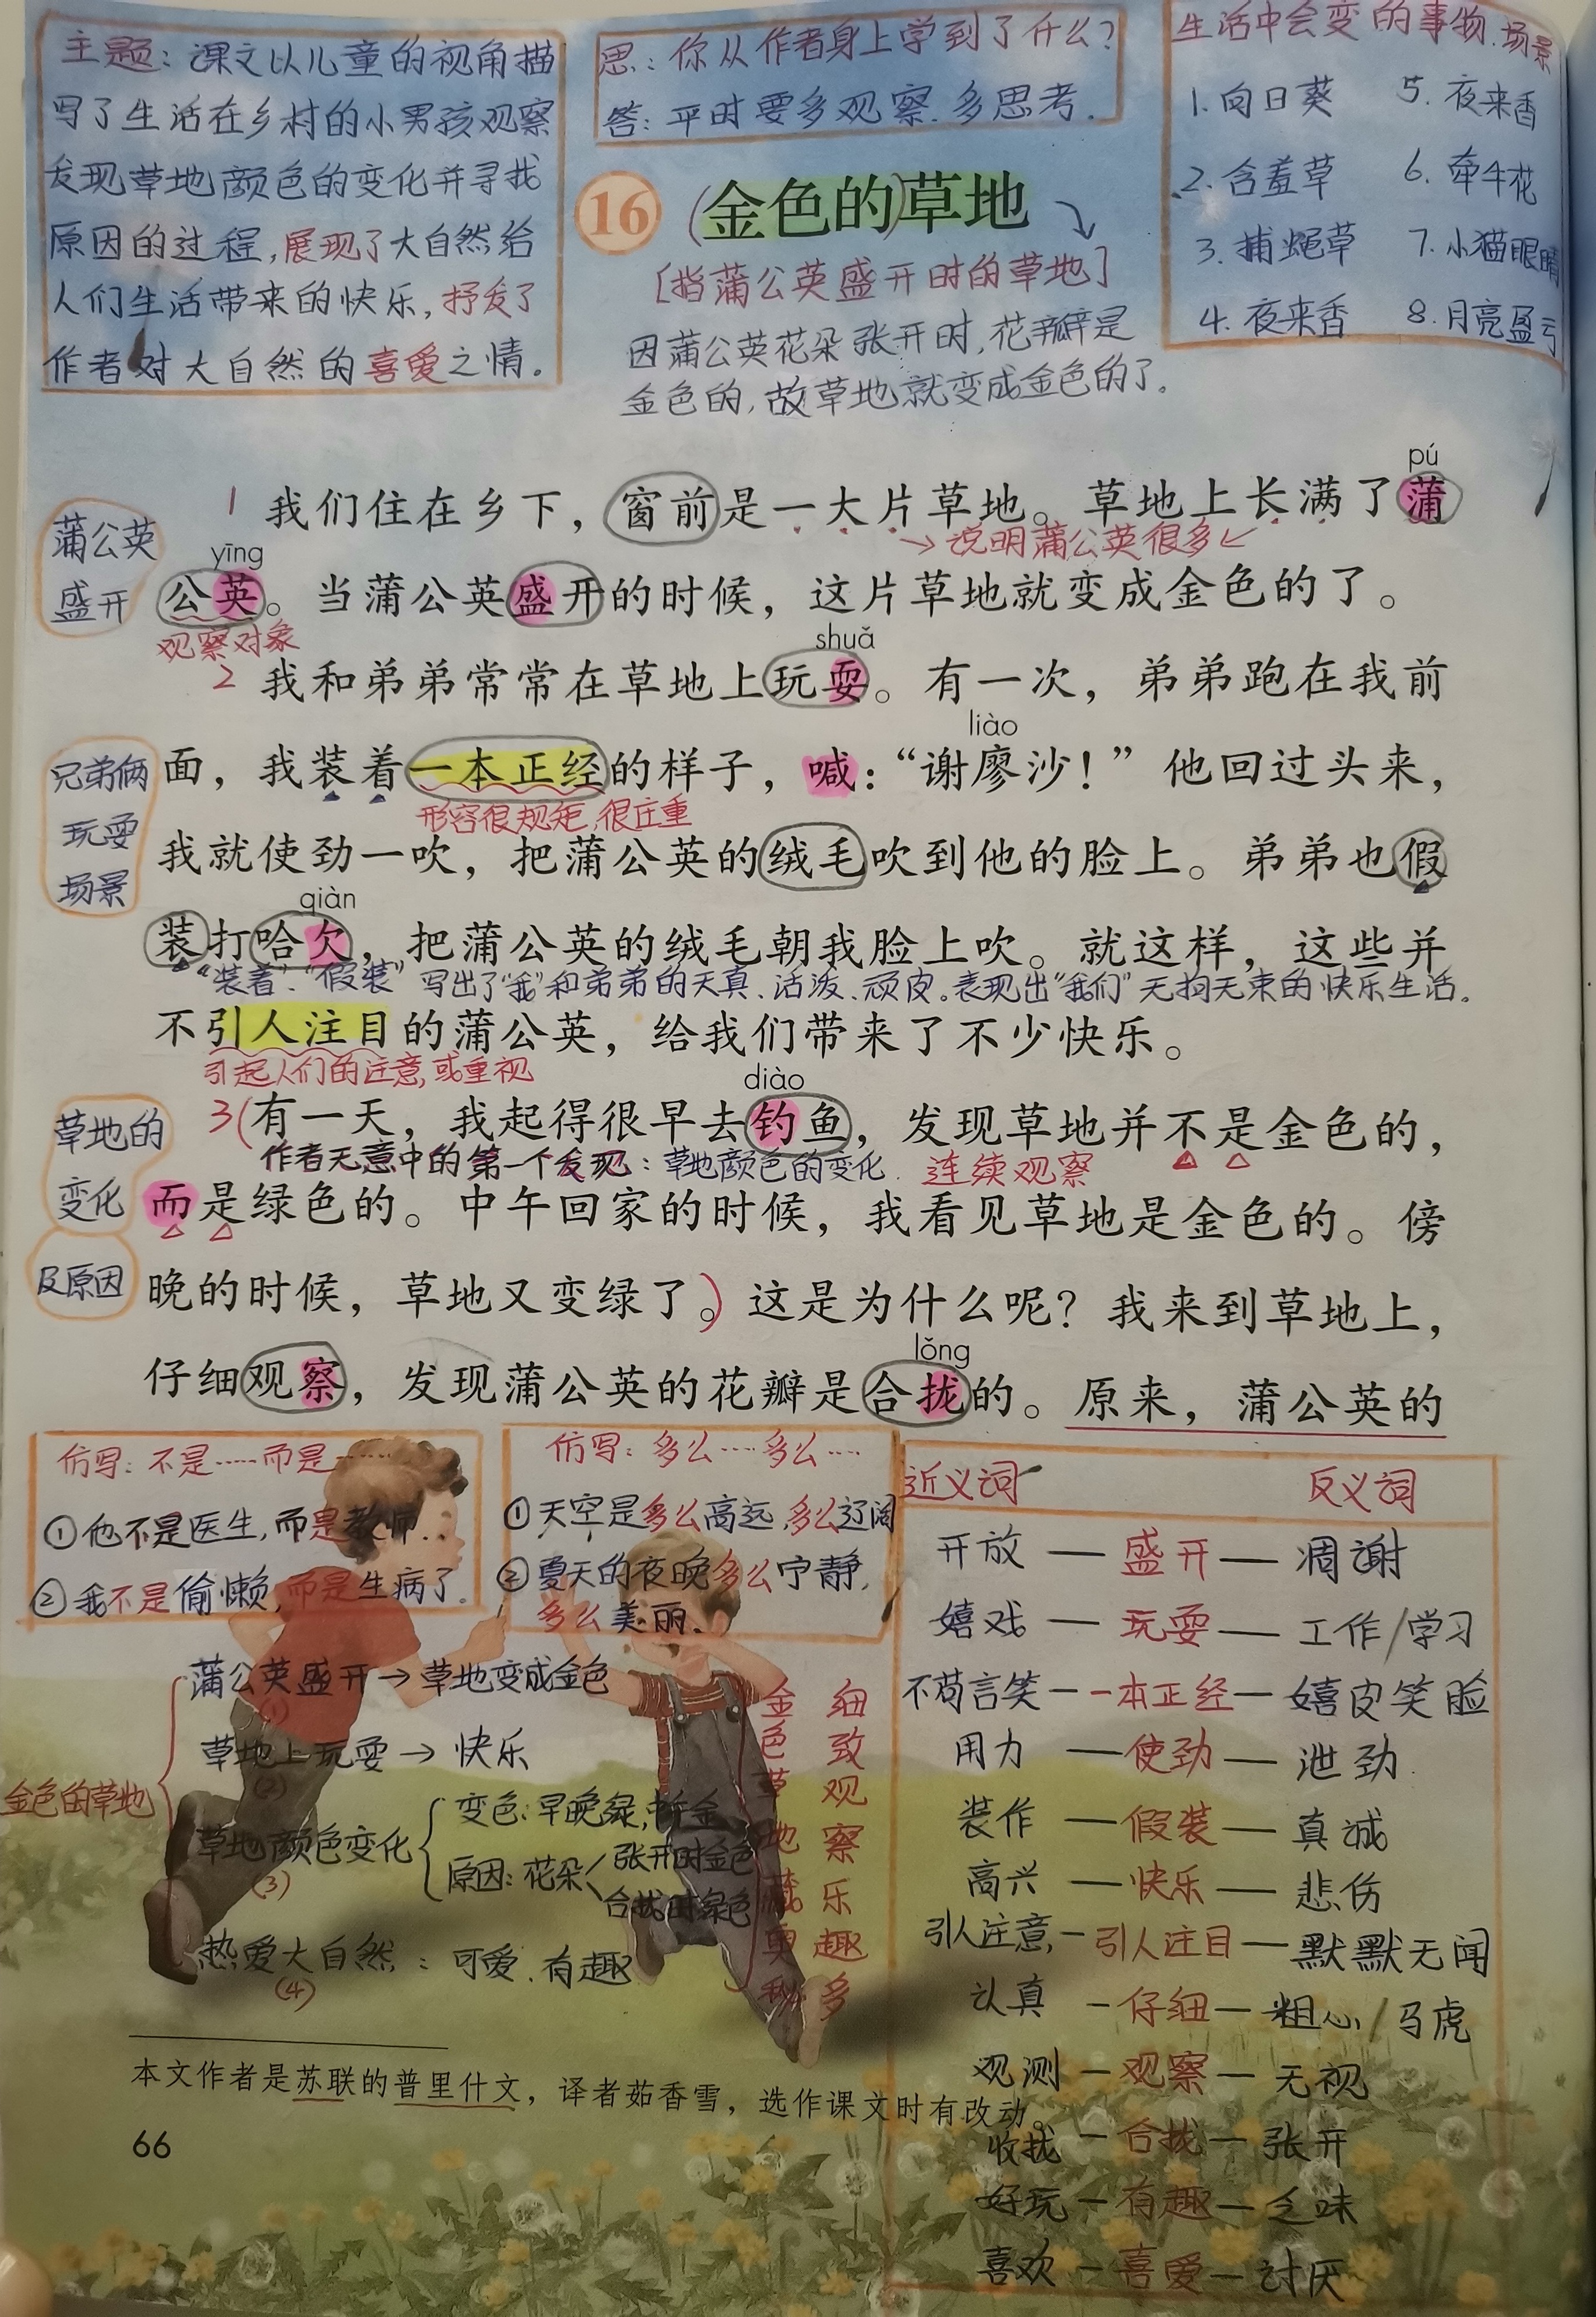 主题：课文以儿童的视角描
写了生活在乡村的小男孩观察
发现草地颜色的变化并寻找
原因的过程,展现了大自然给
人们生活带来的快乐,抒发了
作者对大自然的喜爱之情。
思：你从作者身上学到了什么?
答：平时要多观察.多思考.
生活中会变的事物.场景
1.向日葵 5.夜来香
2.含羞草 6.牵牛花
3.捕蝇草 7.小猫眼睛
4.夜来香 8.月亮盈亏
16 (金色的)草地
[指蒲公英盛开时的草地]
因蒲公英花朵张开时,花瓣是
金色的,故草地就变成金色的了。
pú
1 我们住在乡下，窗前是一大片草地。草地上长满了蒲
→说明蒲公英很多←
蒲公英
盛开
yīng
公英。当蒲公英盛开的时候，这片草地就变成金色的了。
观察对象
shuǎ
2 我和弟弟常常在草地上玩耍。有一次，弟弟跑在我前
liào
兄弟俩
玩耍
场景
面，我装着一本正经的样子，喊：“谢廖沙！”他回过头来，
形容很规矩,很庄重
我就使劲一吹，把蒲公英的绒毛吹到他的脸上。弟弟也假
qiàn
装打哈欠，把蒲公英的绒毛朝我脸上吹。就这样，这些并
“装着”.“假装”写出了“我”和弟弟的天真、活泼、顽皮。表现出“我们”无拘无束的快乐生活。
不引人注目的蒲公英，给我们带来了不少快乐。
引起人们的注意,或重视
diào
草地的
变化
及原因
3(有一天，我起得很早去钓鱼，发现草地并不是金色的，
作者无意中的第一个发现：草地颜色的变化. 连续观察
而是绿色的。中午回家的时候，我看见草地是金色的。傍
晚的时候，草地又变绿了。)这是为什么呢？我来到草地上，
lǒng
仔细观察，发现蒲公英的花瓣是合拢的。原来，蒲公英的
仿写：不是……而是……
①他不是医生,而是教师.
②我不是偷懒,而是生病了.
仿写：多么……多么……
①天空是多么高远,多么辽阔
②夏天的夜晚多么宁静,
多么美丽.
近义词 反义词
开放—盛开—凋谢
嬉戏—玩耍—工作/学习
不苟言笑—一本正经—嬉皮笑脸
用力—使劲—泄劲
装作—假装—真诚
高兴—快乐—悲伤
引人注意—引人注目—默默无闻
认真—仔细—粗心/马虎
观测—观察—无视
收拢—合拢—张开
好玩—有趣—乏味
喜欢—喜爱—讨厌
金色的草地
蒲公英盛开→草地变成金色
(1)
草地上玩耍→快乐
(2)
草地颜色变化
(3)
变色：早晚绿,中午金
原因：花朵
张开时金色
合拢时绿色
热爱大自然：可爱.有趣
(4)
金色草地藏奥秘
细致观察乐趣多
本文作者是苏联的普里什文，译者茹香雪，选作课文时有改动。
66